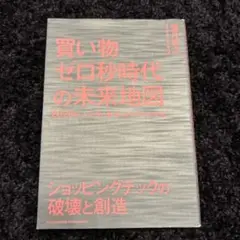 買い物
ゼロ秒時代
の未来地図
ショッピングテックの
破壊と創造